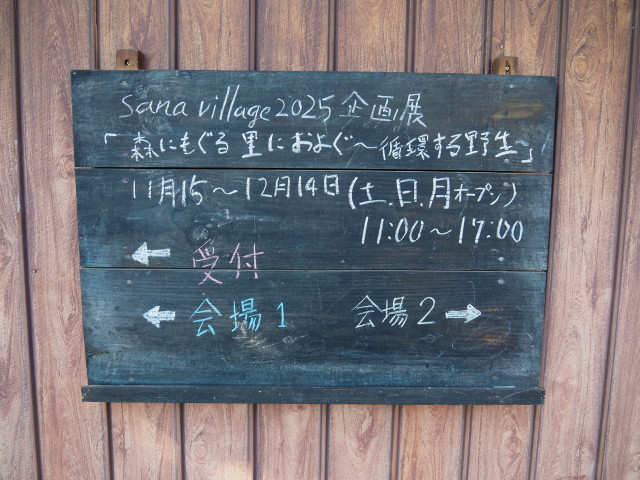 sana village 2025 企画展
「森にもぐる 里におよぐ〜循環する野生〜」
11月15〜12月14日(土.日.月オープン)
11:00〜17:00
← 受付
← 会場1 会場2 →